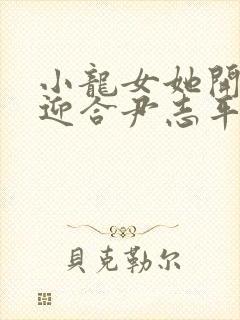 小龍女她開
迎合尹志平
貝克勒尔